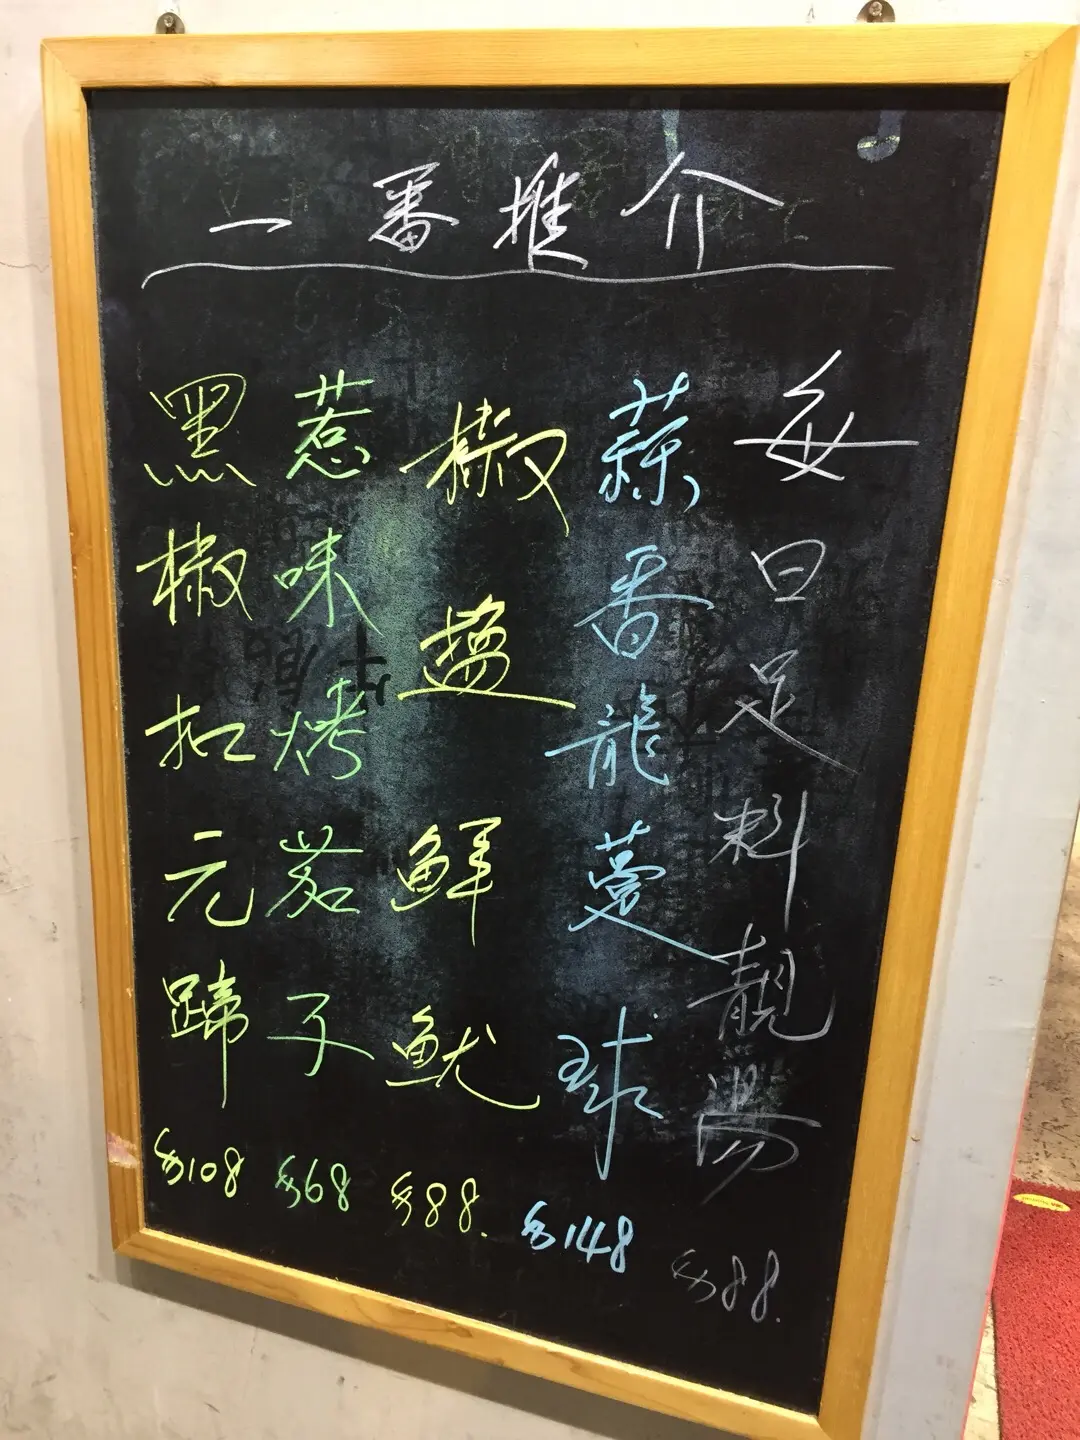 一番推介
每日足料靚湯 $88.
蒜香龍躉球 $148
椒鹽鮮魷 $88.
惹味烤茄子 $68
黑椒扣元蹄 $108